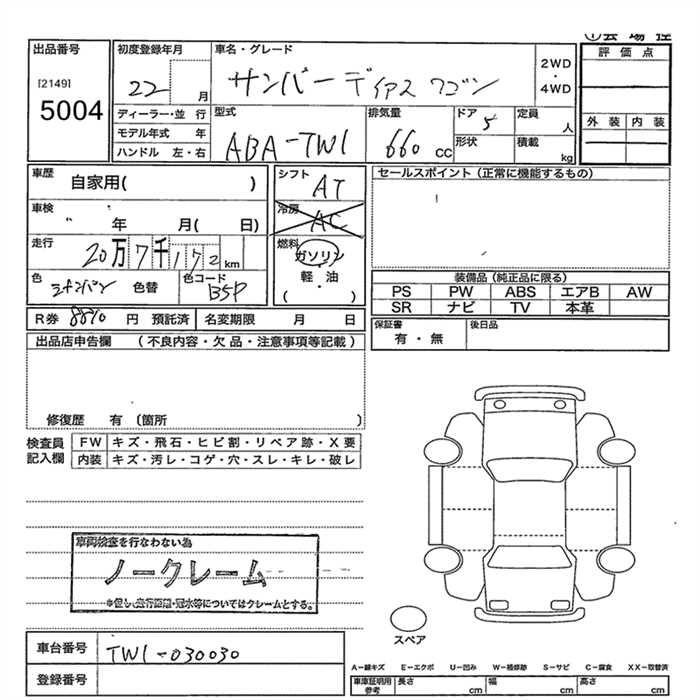 出品番号
[2149]
5004
初度登録年月
22 月
車名・グレード
サンバー ディアス ワゴン
2WD
・
4WD
①会場控
評価点
外装 内装
ディーラー・並行
モデル年式 年
ハンドル 左・右
型式
ABA-TW1
排気量
660 cc
ドア
5
形状
定員
人
積載
kg
車歴
自家用( )
シフト
AT
車検
年 月( 日)
冷房
AC
走行
20万7千172km
燃料
ガソリン
軽・油
( )
色
シャンパン 色替
色コード
B5P
R券 8870 円 預託済 名変期限 月 日
セールスポイント(正常に機能するもの)
装備品(純正品に限る)
PS PW ABS エアB AW
SR ナビ TV 本革
保証書
有・無
後日品
出品店申告欄 (不良内容・欠品・注意事項等記載)
修復歴 有 (箇所 )
検査員
記入欄
FW キズ・飛石・ヒビ割・リペア跡・X要
内装 キズ・汚レ・コゲ・穴・スレ・キレ・破レ
車両検査を行なわない為
ノークレーム
※但し、走行距離・冠水等についてはクレームとする。
スペア
車台番号 TW1-030030
登録番号
A-線キズ E-エクボ U-凹み W-補修跡 S-サビ C-腐食 XX-取替済
車庫証明用
参考
長さ cm 幅 cm 高さ cm